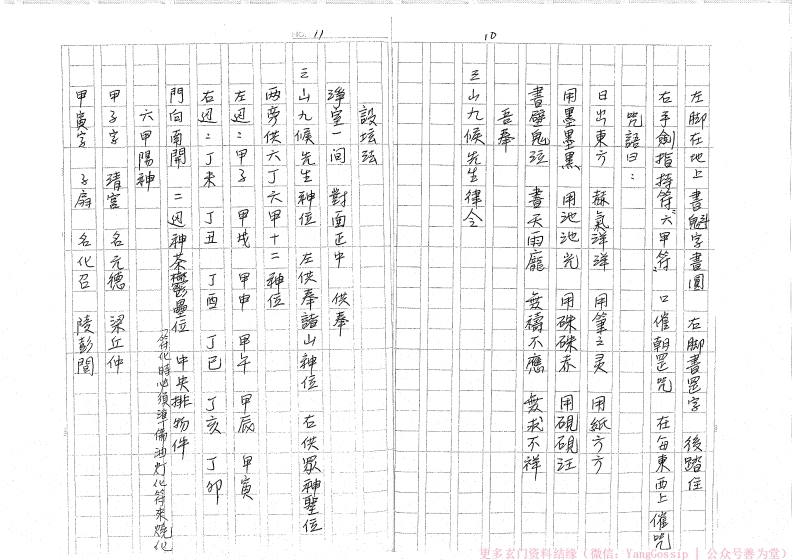 10
左脚在地上 書魁字畫圓 右脚書罡字 後踏住
右手劍指持符"六甲符" 口催朝罡咒 在每東西上催咒
咒語曰:
日出東方 赫氣洋洋 用筆之灵 用紙方方
用墨墨黑 用池池光 用硃硃赤 用硯硯汪
書壁鬼泣 晝天雨龐 無禱不應 無求不祥
吾奉
三山九候先生律令
NO. 11
設坛法
淨室一间 對面正中 供奉
三山九候先生神位 左供奉諸山神位 右供眾神聖位
兩旁供六丁六甲十二神位
左边:甲子 甲戌 甲申 甲午 甲辰 甲寅
右边:丁未 丁丑 丁酉 丁巳 丁亥 丁卯
門向南開 二边神荼鬱壘位 中央排物件
(符化時必須準俻油灯化符來燒化
六甲陽神
甲子字 清宮 名元德 梁丘仲
甲寅字 子靡 名化召 陵彭閭
更多玄门资料结缘(微信:YangGossip | 公众号善为堂)